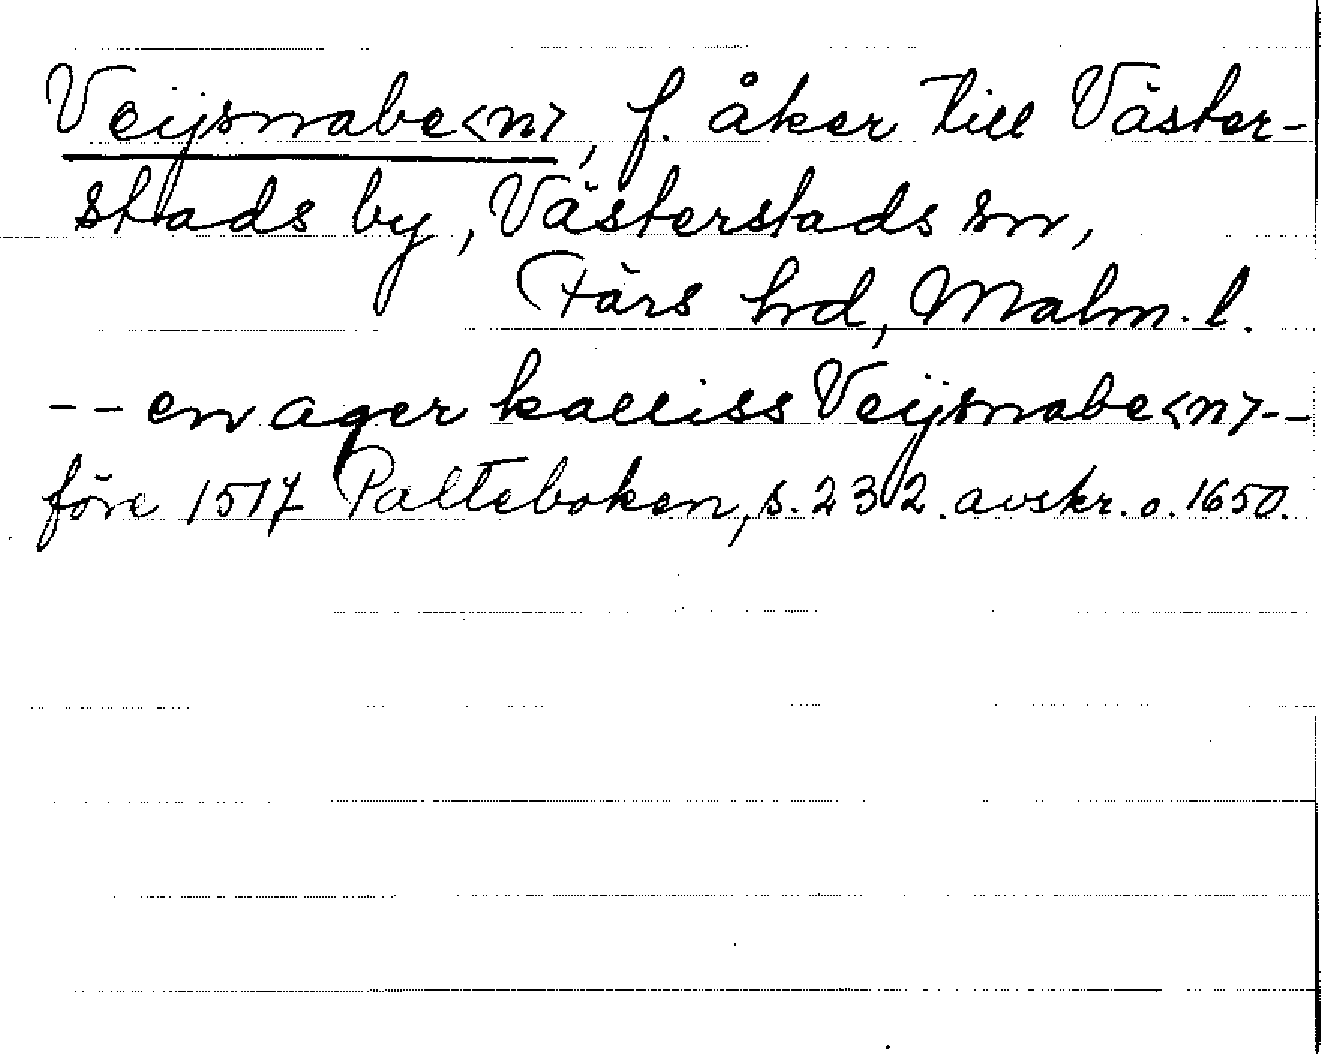 Veijsnabe<n>, f. åker till Väster-
stads by, Västerstads sn,
Färs hd, Malm. l.
-- en ager kalliss Veijsnabe<n>--
före 1517 Palteboken, s. 232. avskr. o. 1650.